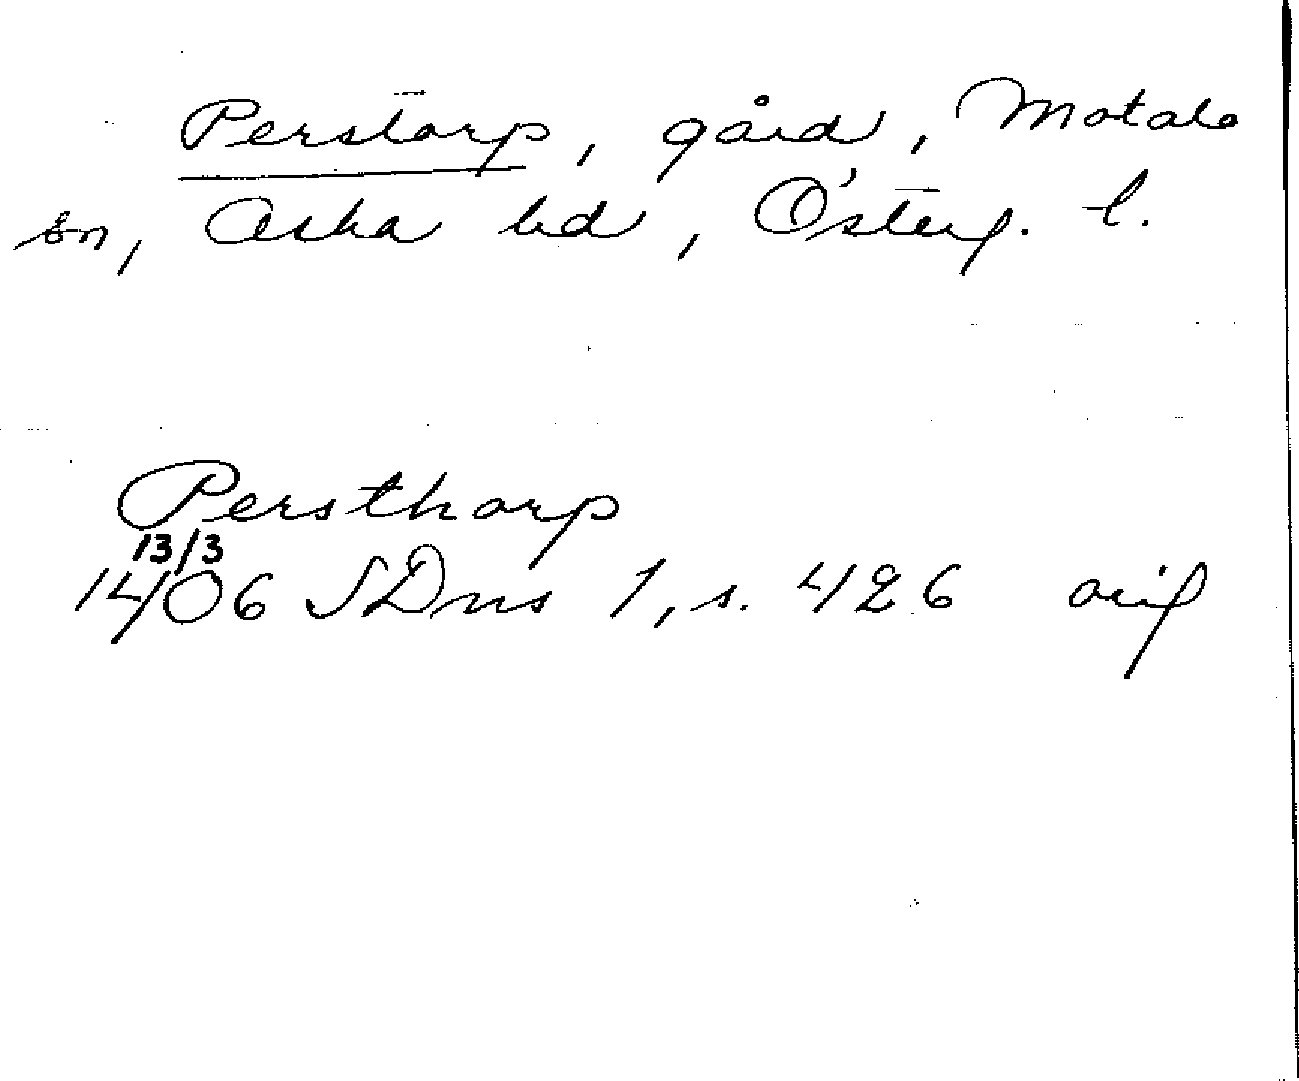 Perstorp, gård, Motala
sn, Aska hd, Österg. l.
Persthorp
13/3
1406 SDns 1, s. 426 orig